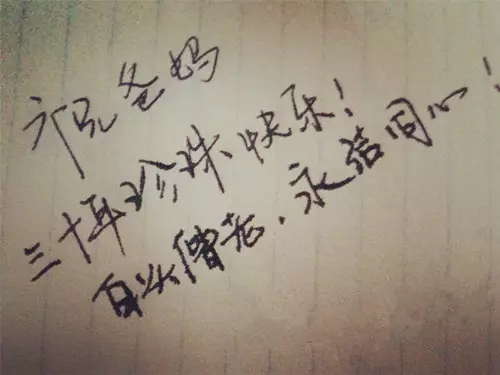 祝爸妈
三十年珍珠快乐！
白头偕老．永结同心！